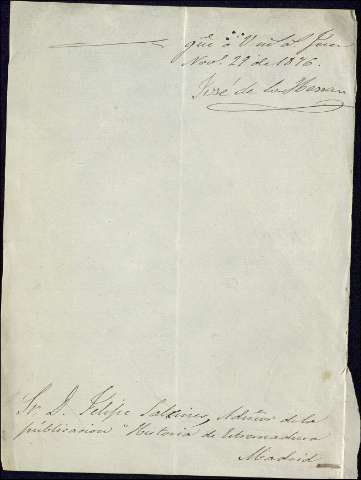 que a V
Novb. 29 de 1876.
José de la Herran
Sr. D. Felipe Admor. de la
publicacion "Historia de Extremadura
Madrid